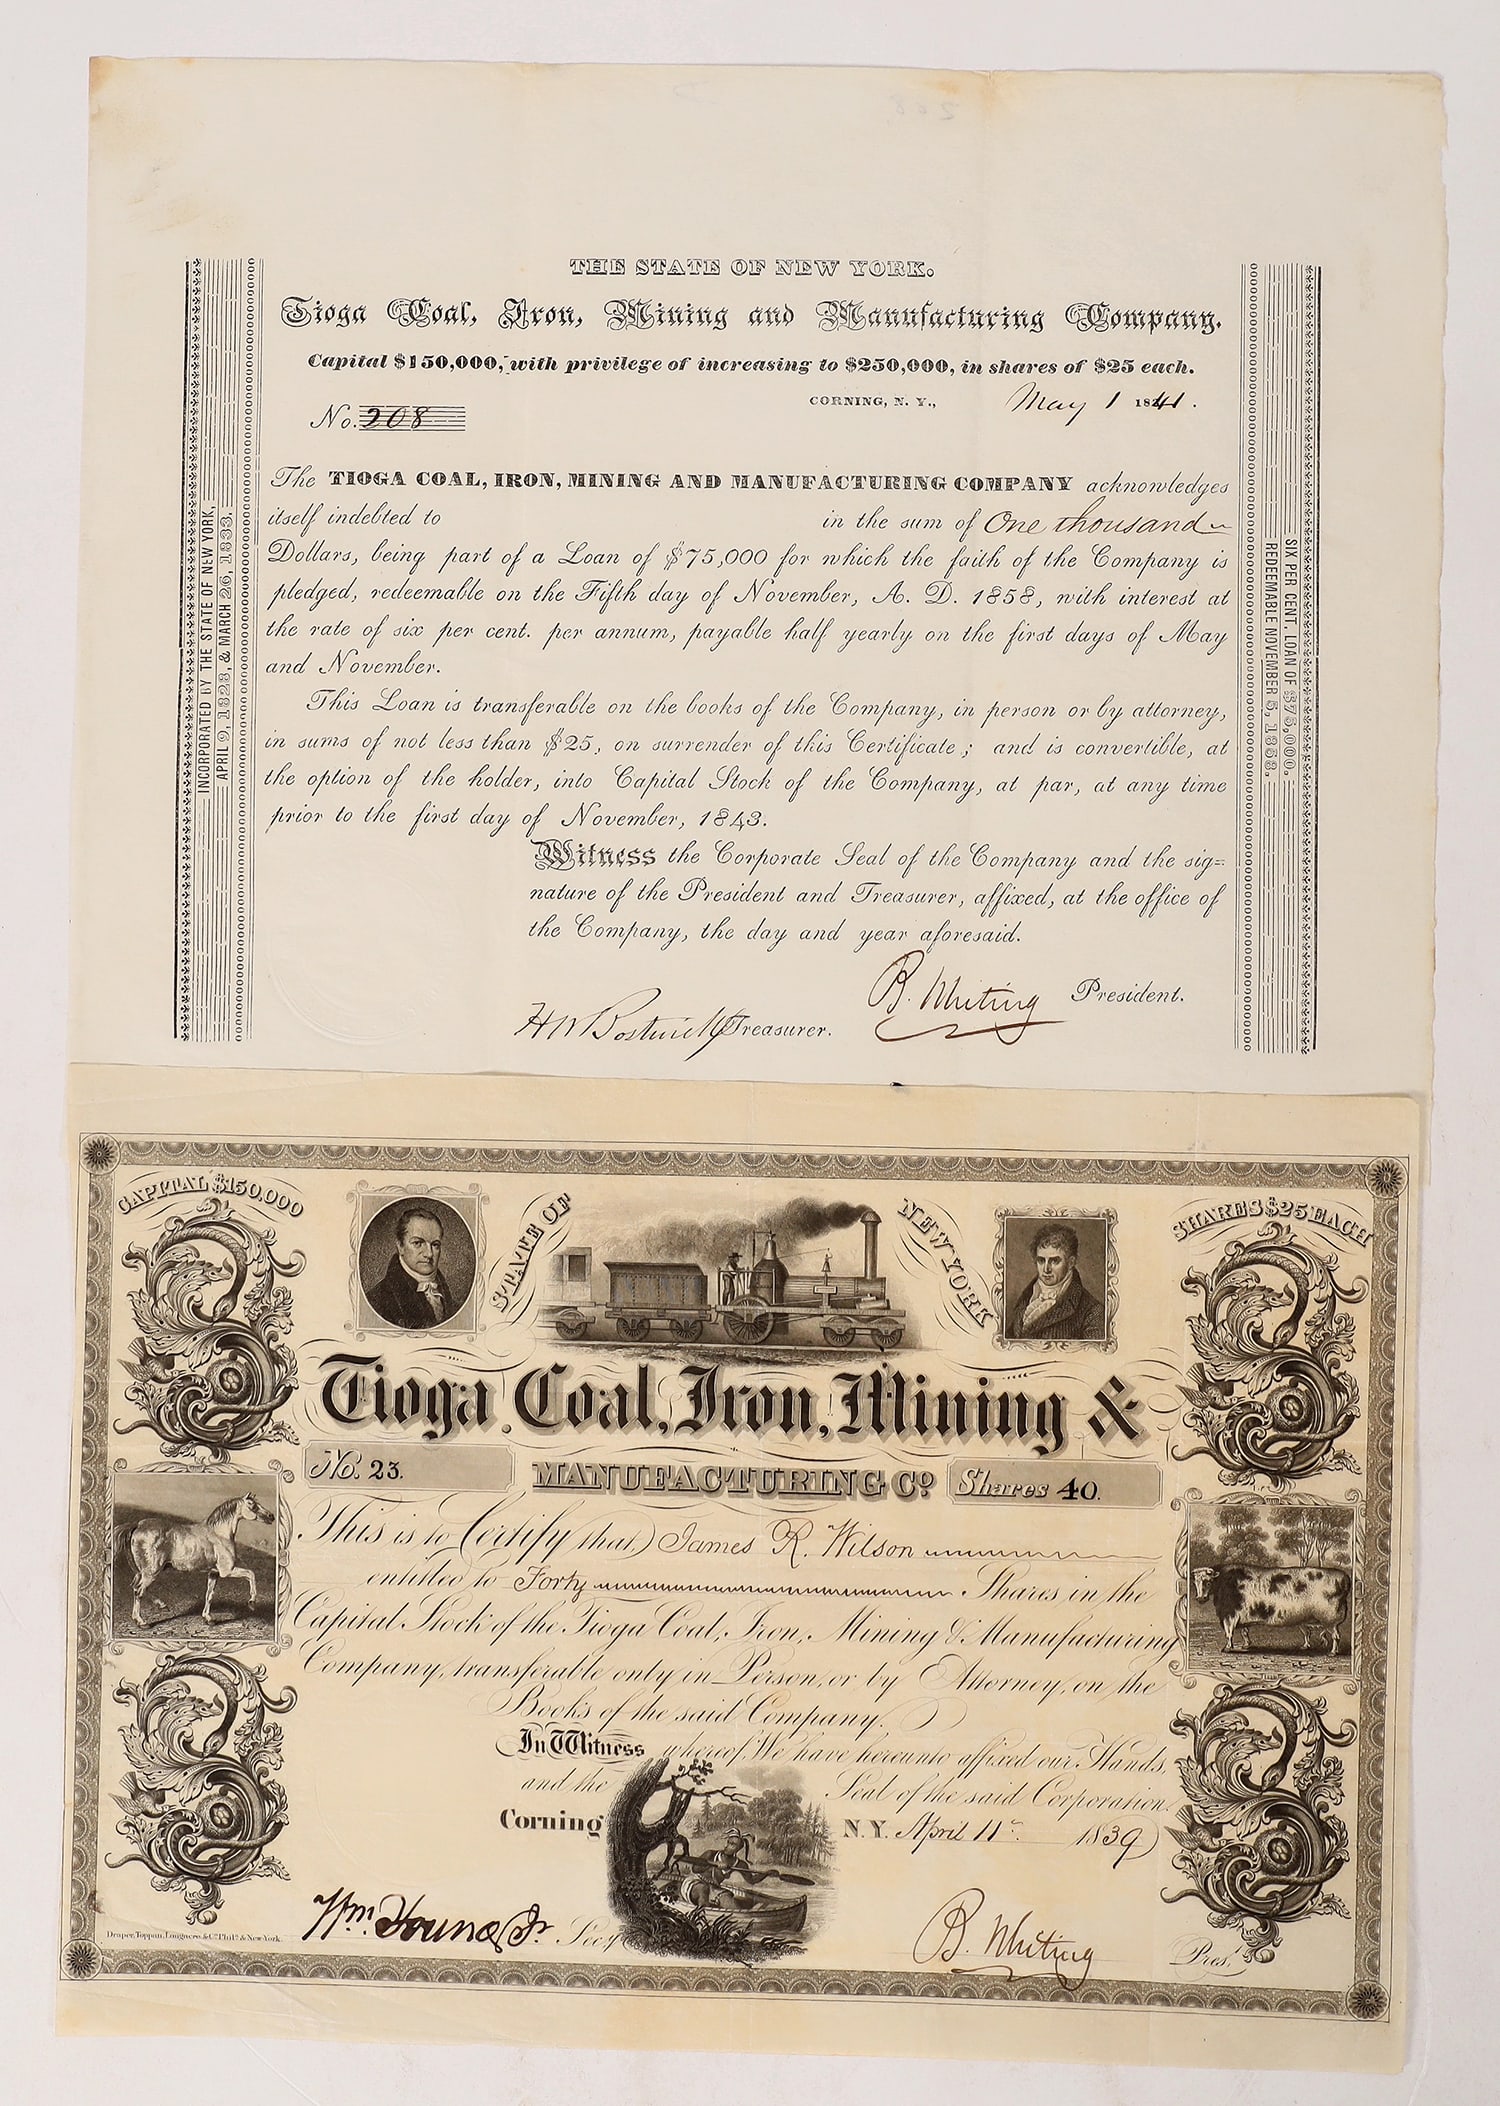 THE STATE OF NEW YORK.
Tioga Coal, Iron, Mining and Manufacturing Company.
Capital $150,000, with privilege of increasing to $250,000, in shares of $25 each.
CORNING, N. Y., May 1 1841.
No. 208
The TIOGA COAL, IRON, MINING AND MANUFACTURING COMPANY acknowledges
itself indebted to in the sum of One thousand
Dollars, being part of a Loan of $75,000 for which the faith of the Company is
pledged, redeemable on the Fifth day of November, A. D. 1858, with interest at
the rate of six per cent. per annum, payable half yearly on the first days of May
and November.
This Loan is transferable on the books of the Company, in person or by attorney,
in sums of not less than $25, on surrender of this Certificate; and is convertible, at
the option of the holder, into Capital Stock of the Company, at par, at any time
prior to the first day of November, 1843.
Witness the Corporate Seal of the Company and the sig=
nature of the President and Treasurer, affixed, at the office of
the Company, the day and year aforesaid.
B. Whiting President.
H W Bostwick Treasurer.
INCORPORATED BY THE STATE OF NEW YORK,
APRIL 9, 1828, & MARCH 26, 1833,
SIX PER CENT. LOAN OF $75,000,
REDEEMABLE NOVEMBER 5, 1858,
CAPITAL $150.000
STATE OF
NEW YORK
SHARES $25 EACH
Tioga Coal, Iron, Mining &
No. 23.
MANUFACTURING Co.
Shares 40.
This is to Certify that James R. Wilson
entitled to Forty Shares in the
Capital Stock of the Tioga Coal, Iron, Mining & Manufacturing
Company, transferable only in Person, or by Attorney, on the
Books of the said Company.
In Witness whereof, We have hereunto affixed our Hands,
and the Seal of the said Corporation.
Corning N.Y. April 11th 1839
Wm. Young Jr. Secy
B. Whiting Prest.
Draper, Toppan, Longacre, & Co. Phila. & New-York.